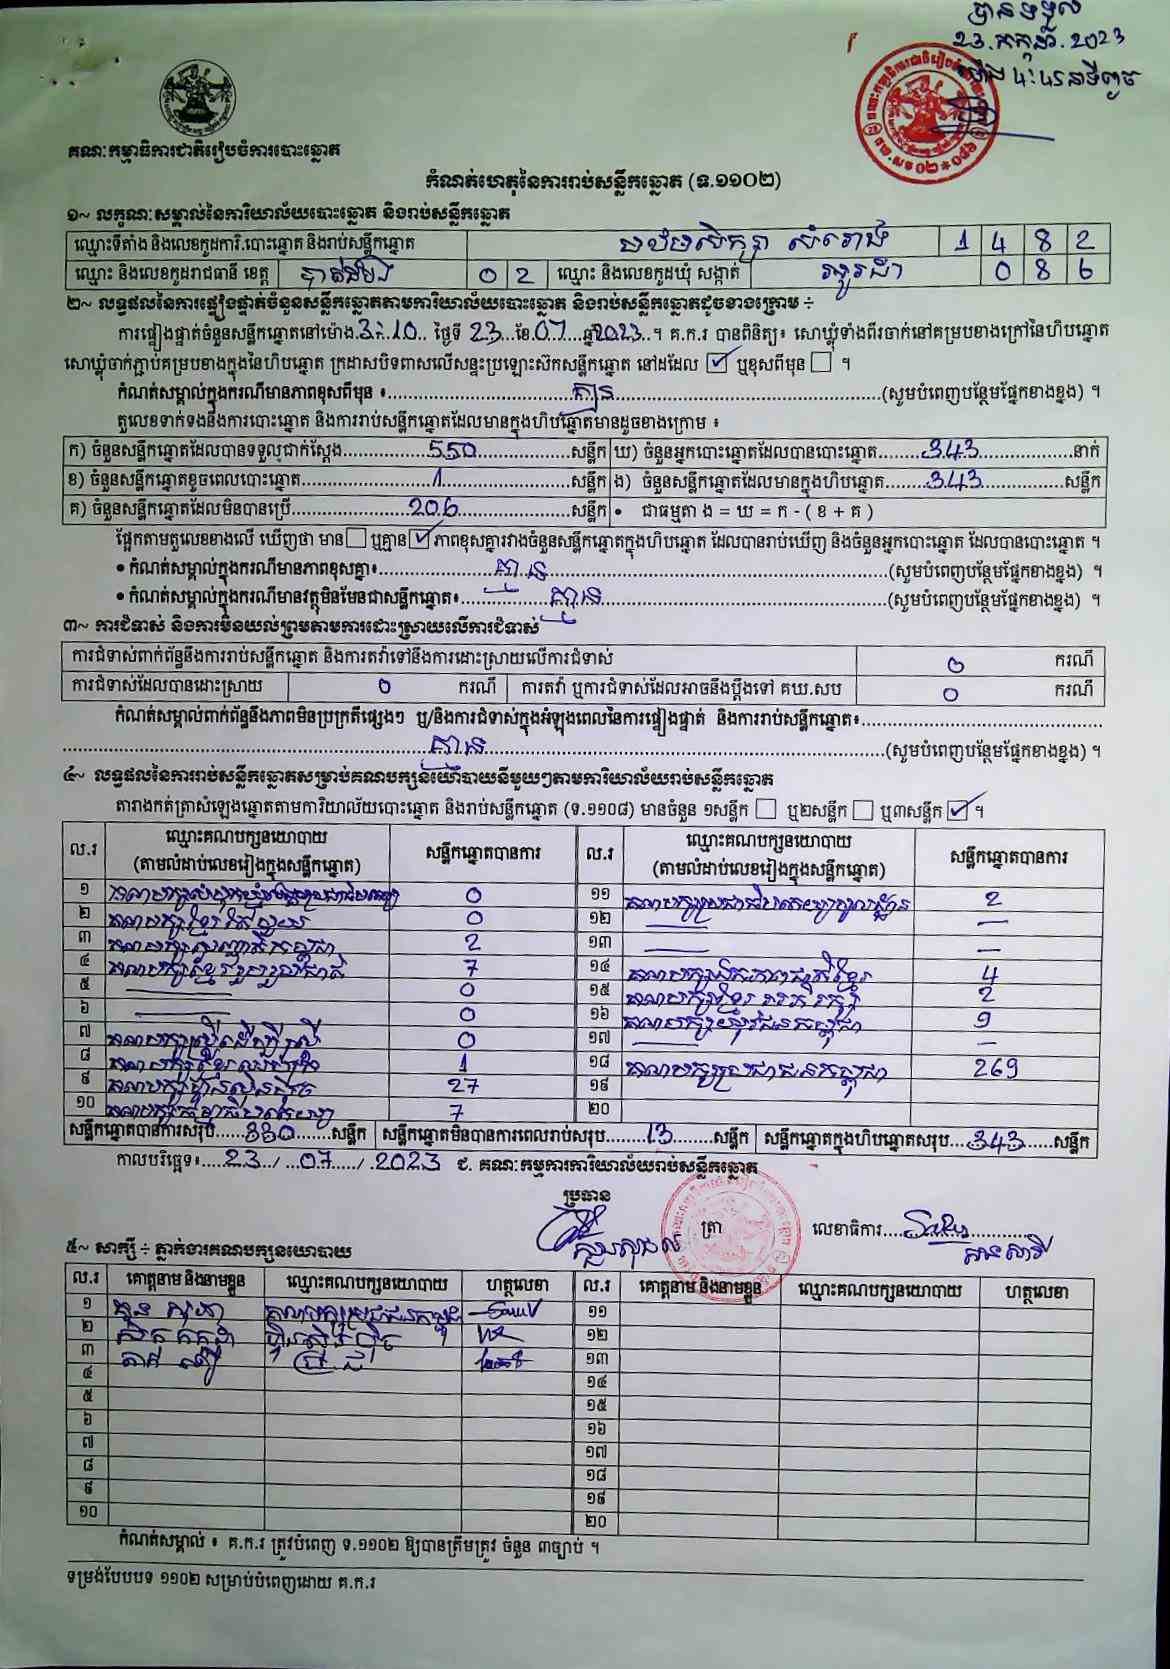 បានទទួល
23.កក្កដា.2023
ម៉ោង 4:45នាទីល្ងាច
គណៈកម្មាធិការជាតិរៀបចំការបោះឆ្នោត
កំណត់ហេតុនៃការរាប់សន្លឹកឆ្នោត (ទ.១១០២)
១~ លក្ខណៈសម្គាល់នៃការិយាល័យបោះឆ្នោត និងរាប់សន្លឹកឆ្នោត
ឈ្មោះទីតាំង និងលេខកូដការិ.បោះឆ្នោត និងរាប់សន្លឹកឆ្នោត 1 4 8 2
ឈ្មោះ និងលេខកូដរាជធានី ខេត្ត បាត់ដំបង 0 2 ឈ្មោះ និងលេខកូដឃុំ សង្កាត់ 0 8 6
២~ លទ្ធផលនៃការផ្ទៀងផ្ទាត់ចំនួនសន្លឹកឆ្នោតតាមការិយាល័យបោះឆ្នោត និងរាប់សន្លឹកឆ្នោតដូចខាងក្រោម ÷
ការផ្ទៀងផ្ទាត់ចំនួនសន្លឹកឆ្នោតនៅម៉ោង 3:10 ថ្ងៃទី 23 ខែ 07 ឆ្នាំ 2023 ។ គ.ក.រ បានពិនិត្យ៖ សោឃ្លុំទាំងពីរចាក់នៅគម្របខាងក្រៅនៃហិបឆ្នោត
សោឃ្លុំចាក់ភ្ជាប់គម្របខាងក្នុងនៃហិបឆ្នោត ក្រដាសបិទពាសលើសន្ទះប្រឡោះស៊កសន្លឹកឆ្នោត នៅដដែល ☑ ឬខុសពីមុន ☐ ។
កំណត់សម្គាល់ក្នុងករណីមានភាពខុសពីមុន ៖ គ្មាន (សូមបំពេញបន្ថែមផ្នែកខាងខ្នង) ។
តួលេខទាក់ទងនឹងការបោះឆ្នោត និងការរាប់សន្លឹកឆ្នោតដែលមានក្នុងហិបឆ្នោតមានដូចខាងក្រោម ៖
ក) ចំនួនសន្លឹកឆ្នោតដែលបានទទួលជាក់ស្តែង 550 សន្លឹក ឃ) ចំនួនអ្នកបោះឆ្នោតដែលបានបោះឆ្នោត 343 នាក់
ខ) ចំនួនសន្លឹកឆ្នោតខូចពេលបោះឆ្នោត 1 សន្លឹក ង) ចំនួនសន្លឹកឆ្នោតដែលមានក្នុងហិបឆ្នោត 343 សន្លឹក
គ) ចំនួនសន្លឹកឆ្នោតដែលមិនបានប្រើ 206 សន្លឹក • ជាធម្មតា ង = ឃ = ក - ( ខ + គ )
ផ្អែកតាមតួលេខខាងលើ ឃើញថា មាន ☐ ឬគ្មាន ☑ ភាពខុសគ្នារវាងចំនួនសន្លឹកឆ្នោតក្នុងហិបឆ្នោត ដែលបានរាប់ឃើញ និងចំនួនអ្នកបោះឆ្នោត ដែលបានបោះឆ្នោត ។
• កំណត់សម្គាល់ក្នុងករណីមានភាពខុសគ្នា៖ គ្មាន (សូមបំពេញបន្ថែមផ្នែកខាងខ្នង) ។
• កំណត់សម្គាល់ក្នុងករណីមានវត្ថុមិនមែនជាសន្លឹកឆ្នោត៖ គ្មាន (សូមបំពេញបន្ថែមផ្នែកខាងខ្នង) ។
៣~ ការជំទាស់ និងការមិនយល់ព្រមតាមការដោះស្រាយលើការជំទាស់
ការជំទាស់ពាក់ព័ន្ធនឹងការរាប់សន្លឹកឆ្នោត និងការតវ៉ាទៅនឹងការដោះស្រាយលើការជំទាស់ 0 ករណី
ការជំទាស់ដែលបានដោះស្រាយ 0 ករណី ការតវ៉ា ឬការជំទាស់ដែលអាចនឹងប្តឹងទៅ គឃ.សប 0 ករណី
កំណត់សម្គាល់ពាក់ព័ន្ធនឹងភាពមិនប្រក្រតីផ្សេងៗ ឬ/និងការជំទាស់ក្នុងអំឡុងពេលនៃការផ្ទៀងផ្ទាត់ និងការរាប់សន្លឹកឆ្នោត៖
គ្មាន (សូមបំពេញបន្ថែមផ្នែកខាងខ្នង) ។
៤~ លទ្ធផលនៃការរាប់សន្លឹកឆ្នោតសម្រាប់គណបក្សនយោបាយនីមួយៗតាមការិយាល័យរាប់សន្លឹកឆ្នោត
តារាងកត់ត្រាសំឡេងឆ្នោតតាមការិយាល័យបោះឆ្នោត និងរាប់សន្លឹកឆ្នោត (ទ.១១០៨) មានចំនួន ១សន្លឹក ☐ ឬ២សន្លឹក ☐ ឬ៣សន្លឹក ☑ ។
ល.រ ឈ្មោះគណបក្សនយោបាយ (តាមលំដាប់លេខរៀងក្នុងសន្លឹកឆ្នោត) សន្លឹកឆ្នោតបានការ ល.រ ឈ្មោះគណបក្សនយោបាយ (តាមលំដាប់លេខរៀងក្នុងសន្លឹកឆ្នោត) សន្លឹកឆ្នោតបានការ
១ 0 ១១ 2
២ 0 ១២ —
៣ 2 ១៣ —
៤ គណបក្សខ្មែររួបរួមជាតិ 7 ១៤ 4
៥ — 0 ១៥ 2
៦ — 0 ១៦ គណបក្សយុវជនកម្ពុជា 9
៧ 0 ១៧ —
៨ 1 ១៨ គណបក្សប្រជាជនកម្ពុជា 269
៩ គណបក្សហ្វ៊ុនស៊ិនប៉ិច 27 ១៩
១០ 7 ២០
សន្លឹកឆ្នោតបានការសរុប 330 សន្លឹក សន្លឹកឆ្នោតមិនបានការពេលរាប់សរុប 13 សន្លឹក សន្លឹកឆ្នោតក្នុងហិបឆ្នោតសរុប 343 សន្លឹក
កាលបរិច្ឆេទ៖ 23 / 07 / 2023 ជ. គណៈកម្មការការិយាល័យរាប់សន្លឹកឆ្នោត
ប្រធាន
ត្រា លេខាធិការ
៥~ សាក្សី ÷ ភ្នាក់ងារគណបក្សនយោបាយ
ល.រ គោត្តនាម និងនាមខ្លួន ឈ្មោះគណបក្សនយោបាយ ហត្ថលេខា ល.រ គោត្តនាម និងនាមខ្លួន ឈ្មោះគណបក្សនយោបាយ ហត្ថលេខា
១ គណបក្សប្រជាជនកម្ពុជា ១១
២ ហ្វ៊ុនស៊ិនប៉ិច ១២
៣ ១៣
៤ ១៤
៥ ១៥
៦ ១៦
៧ ១៧
៨ ១៨
៩ ១៩
១០ ២០
កំណត់សម្គាល់ ៖ គ.ក.រ ត្រូវបំពេញ ទ.១១០២ ឱ្យបានត្រឹមត្រូវ ចំនួន ៣ច្បាប់ ។
ទម្រង់បែបបទ ១១០២ សម្រាប់បំពេញដោយ គ.ក.រ